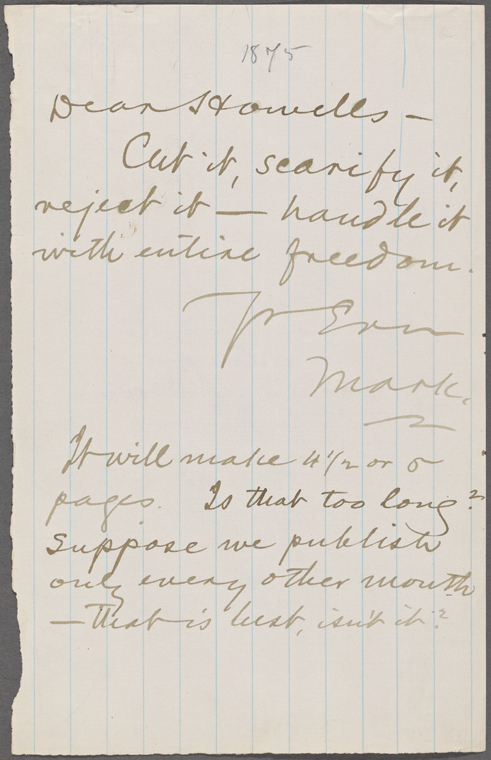 1875
Dear Howells —
Cut it, scarify it,
reject it — handle it
with entire freedom.
Yr Ever
Mark.
It will make 4 1/2 or 5
pages. Is that too long?
Suppose we publish
only every other month
— that is best, isn't it?